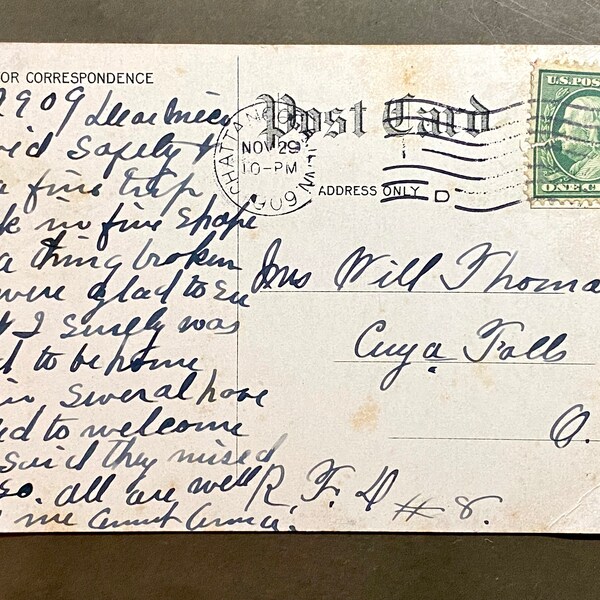 OR CORRESPONDENCE
1909 Dear Niece
Safely &
a fine trip
in fine shape
a thing broken
were glad to see
& I surely was
to be home
in Several have
to welcome
Said they missed
so. all are well
me
Post Card
CHATTANOOGA TENN.
NOV 29
10-PM
1909
D
ADDRESS ONLY
U.S. POST
ONE C
Mrs Will Thoma
Cuya Falls
O.
R. F. D # 8.